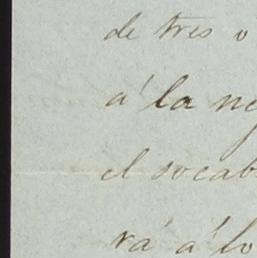 de tres o
á la ne
el socab
rá á lo